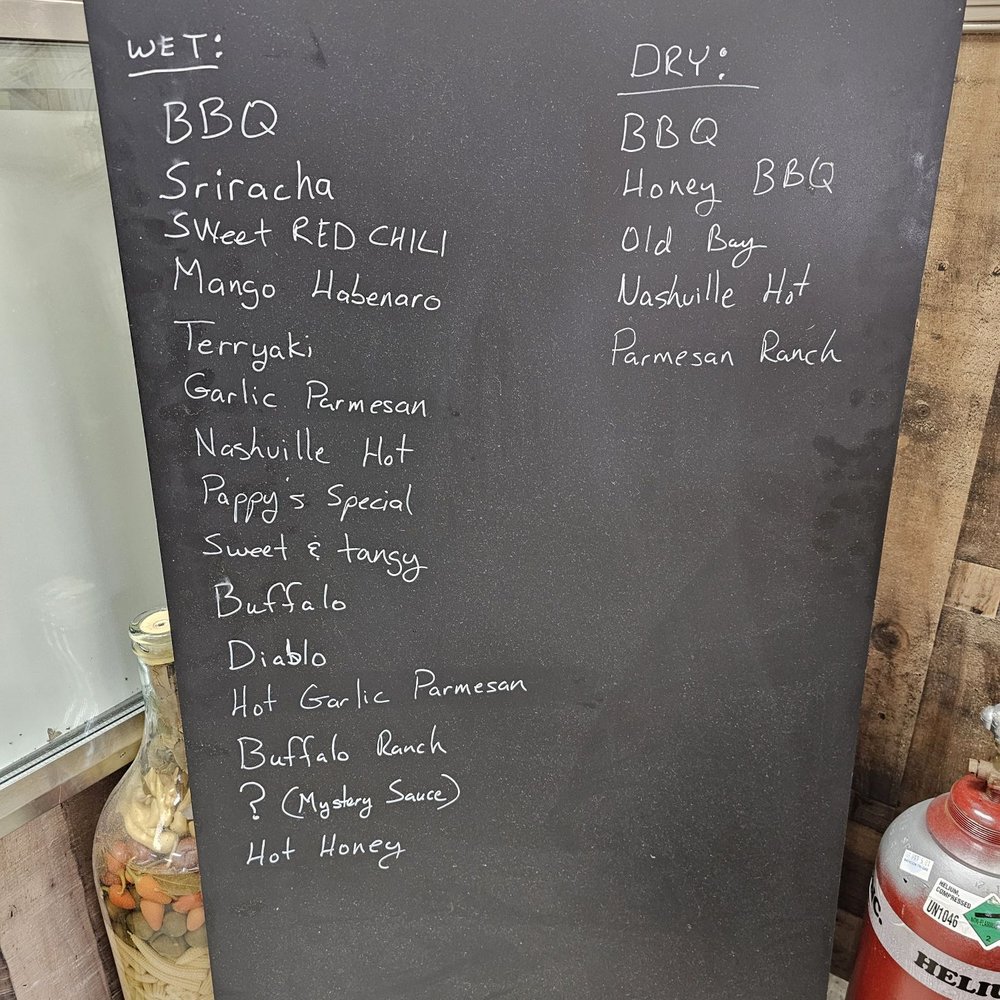 WET:
BBQ
Sriracha
Sweet RED CHILI
Mango Habenaro
Terryaki
Garlic Parmesan
Nashville Hot
Pappy's Special
Sweet & tangy
Buffalo
Diablo
Hot Garlic Parmesan
Buffalo Ranch
? (Mystery Sauce)
Hot Honey
DRY:
BBQ
Honey BBQ
Old Bay
Nashville Hot
Parmesan Ranch
HELIUM,
COMPRESSED
UN1046
2
C.
HELIU